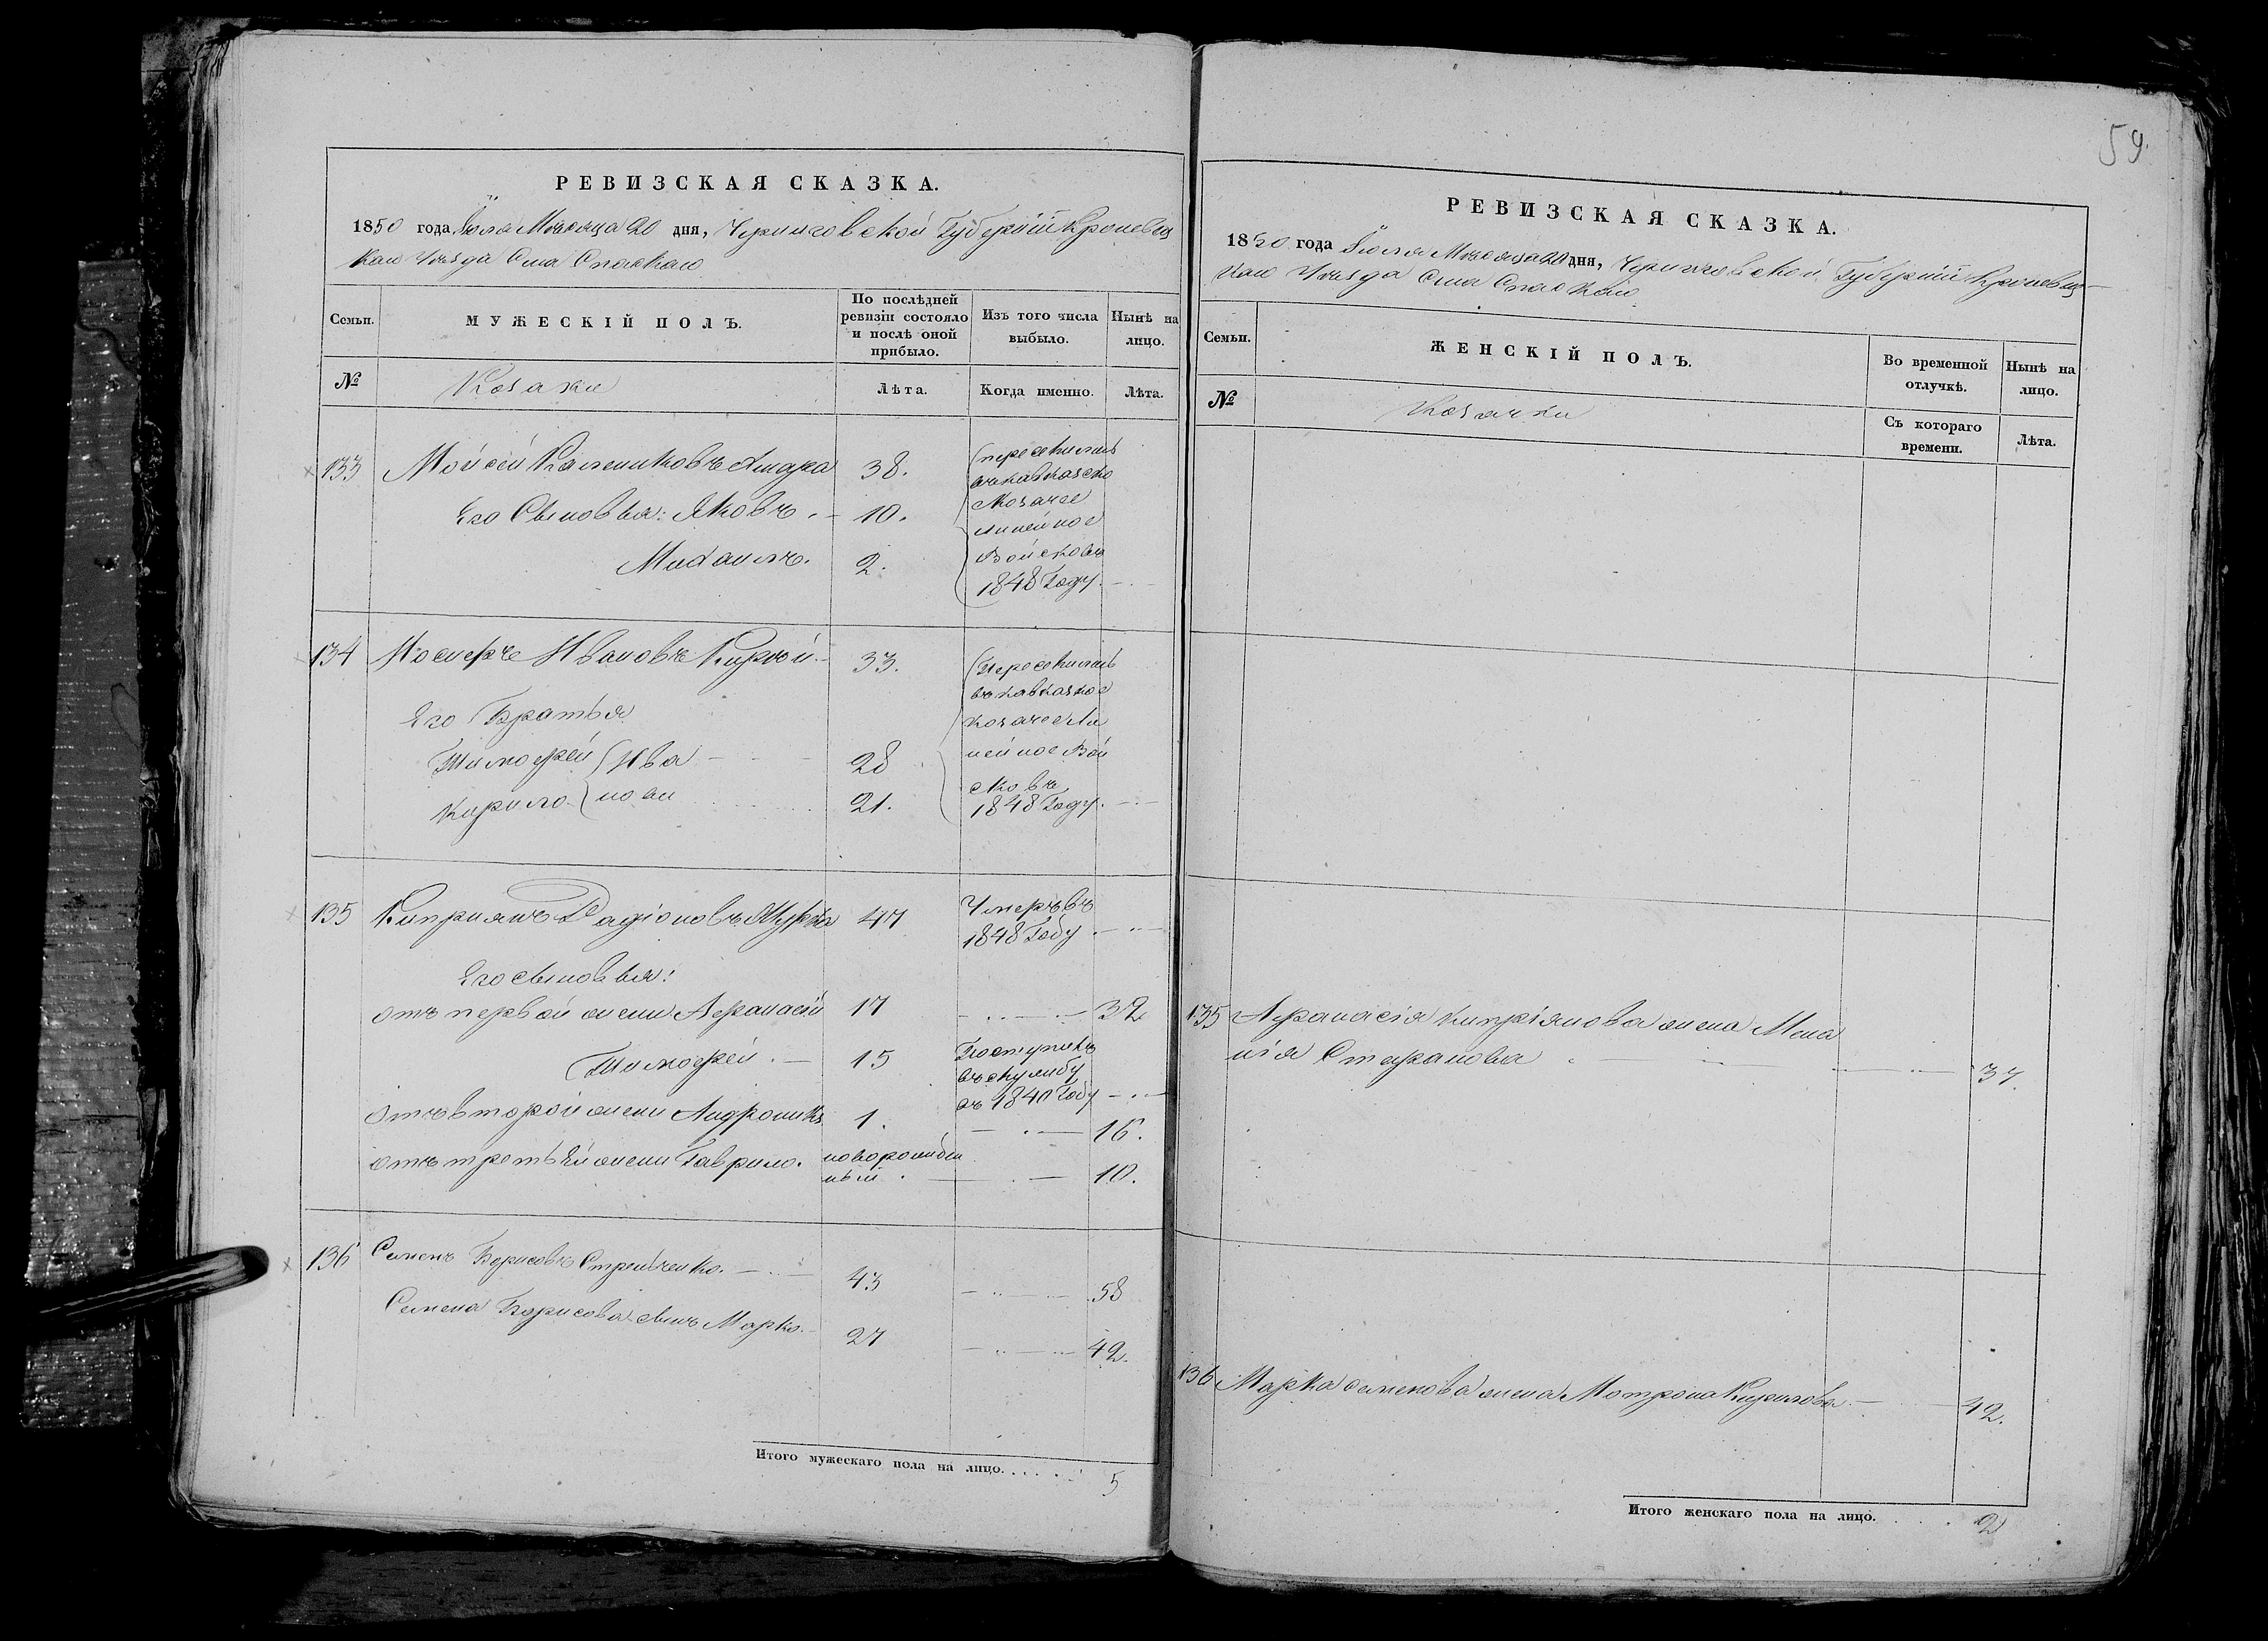 59.
РЕВИЗСКАЯ СКАЗКА.
1850 года Іюля Мѣсяца 20 дня, Черниговской Губерніи Кролевец
каго Уѣзда Села Спаскаго
Семьи.
МУЖЕСКІЙ ПОЛЪ.
По послѣдней ревизіи состояло и послѣ оной прибыло.
Изъ того числа выбыло.
Нынѣ на лицо.
№
Козаки
Лѣта.
Когда именно.
Лѣта.
133 Мойсей 38.
переселились
въ кавказско
Его Сыновья: Яковъ 10.
козачее
линейное
Михаилъ. 2.
Войско въ
1848 Году.
134 Иосифъ Ивановъ 33.
Переселились
въ кавказкое
Его Братья
козачее Ли
Тимофей Ива 28
нейное Вой
ско въ
Кирило новы 21.
1848 Году.
135 Киприянъ Радіоновъ 47
Умеръ въ
1848 Году
Его сыновья:
отъ первой жены Афанасій 17 32
Тимофей 15
Поступилъ
въ службу
въ 1840 Году
отъ второй жены Андроникъ 1. 16.
отъ третьей жены Гаврило. новорожден
ный 10.
136 Семенъ Борисовъ 43 58
Семена Борисова сынъ Марко 27 42.
Итого мужескаго пола на лицо. 5
РЕВИЗСКАЯ СКАЗКА.
1850 года Іюля Мѣсяца 20 дня, Черниговской Губерніи Кролевец
каго Уѣзда Села Спаскаго
Семьи.
ЖЕНСКІЙ ПОЛЪ.
Во временной отлучкѣ.
Нынѣ на лицо.
№
Козачки
Съ котораго времени.
Лѣта.
135 Афанасія Кипріянова жена Мела
нія Стефанова 37.
136 Марка Семенова жена Мотрона Кирилова 42.
Итого женскаго пола на лицо. 2